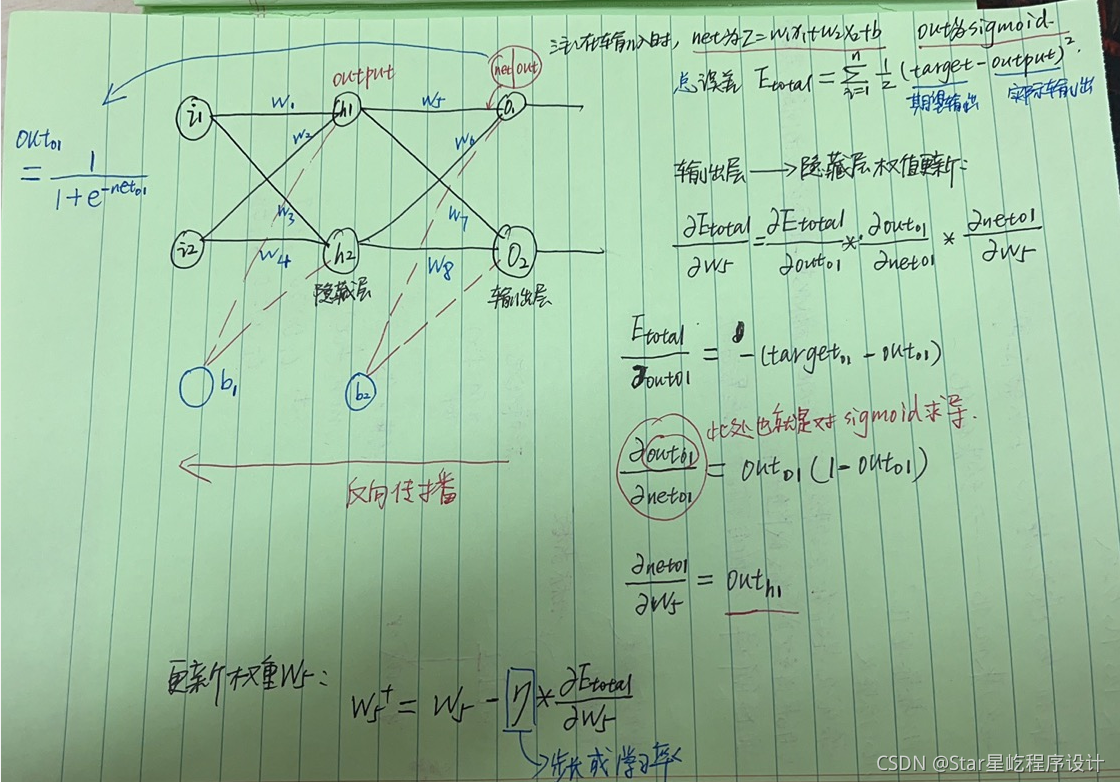 注:在输入时, net为Z=w₁x₁+w₂x₂+b out为sigmoid.
总误差 Etotal = Σⁿᵢ₌₁ 1/2 (target-output)².
期望输出 实际输出
output
net out
i₁ w₁ h₁ w₅ o₁
w₂ w₆
out₀₁ = 1/(1+e^(-net₀₁))
w₃ w₇
i₂ w₄ h₂ w₈ O₂
隐藏层 输出层
b₁ b₂
反向传播
输出层→隐藏层权值更新:
∂Etotal/∂w₅ = ∂Etotal/∂out₀₁ * ∂out₀₁/∂net₀₁ * ∂net₀₁/∂w₅
Etotal/∂out₀₁ = -(target₀₁ - out₀₁)
此处也就是对sigmoid求导.
∂out₀₁/∂net₀₁ = out₀₁(1-out₀₁)
∂net₀₁/∂w₅ = outₕ₁
更新权重w₅:
w₅⁺ = w₅ - η * ∂Etotal/∂w₅
→步长或学习率
CSDN @Star星屹程序设计